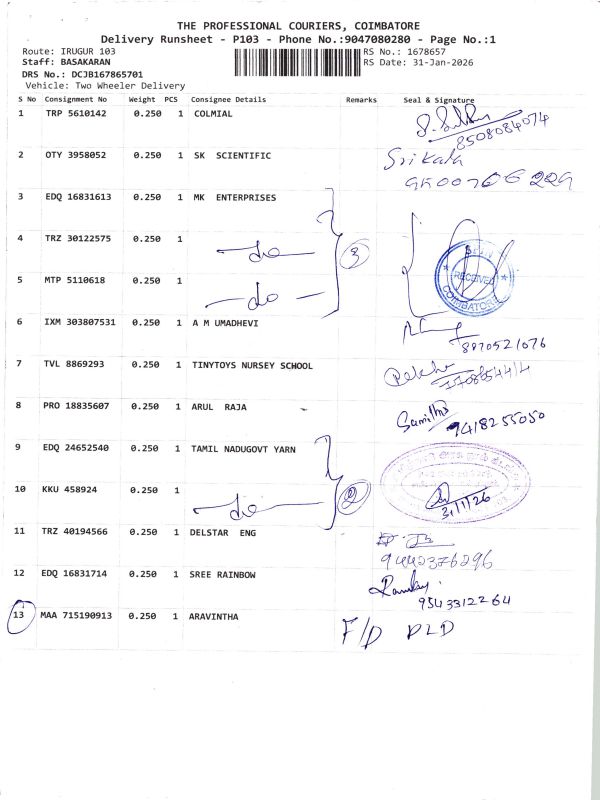 THE PROFESSIONAL COURIERS, COIMBATORE
Delivery Runsheet - P103 - Phone No.:9047080280 - Page No.:1
Route: IRUGUR 103 RS No.: 1678657
Staff: BASAKARAN RS Date: 31-Jan-2026
DRS No.: DCJB167865701
Vehicle: Two Wheeler Delivery
S No Consignment No Weight PCS Consignee Details Remarks Seal & Signature
1 TRP 5610142 0.250 1 COLMIAL
8508084074
2 OTY 3958052 0.250 1 SK SCIENTIFIC Srikala
3 EDQ 16831613 0.250 1 MK ENTERPRISES
4 TRZ 30122575 0.250 1 do 3
5 MTP 5110618 0.250 1 do RECEIVED
COIMBATORE
6 IXM 303807531 0.250 1 A M UMADHEVI
8870521076
7 TVL 8869293 0.250 1 TINYTOYS NURSEY SCHOOL Rekha
8 PRO 18835607 0.250 1 ARUL RAJA Samitha
9418255050
9 EDQ 24652540 0.250 1 TAMIL NADUGOVT YARN
10 KKU 458924 0.250 1 do 2 31/1/26
11 TRZ 40194566 0.250 1 DELSTAR ENG
9442376296
12 EDQ 16831714 0.250 1 SREE RAINBOW
9543312264
13 MAA 715190913 0.250 1 ARAVINTHA F/D DLD